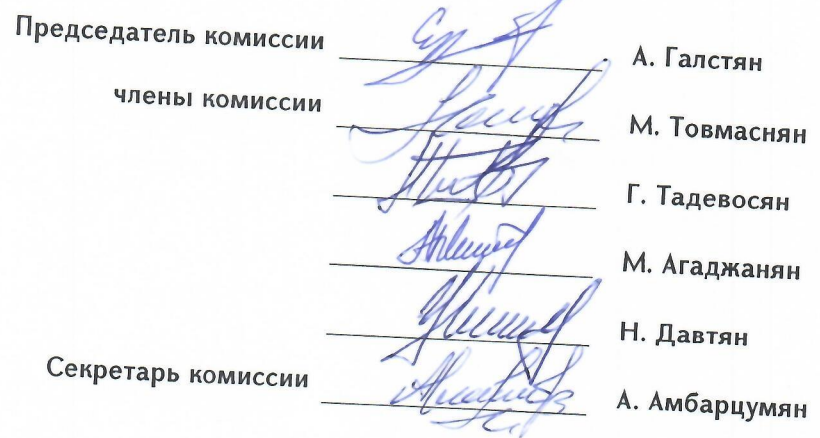 Председатель комиссии А. Галстян
члены комиссии М. Товмаснян
Г. Тадевосян
М. Агаджанян
Н. Давтян
Секретарь комиссии А. Амбарцумян